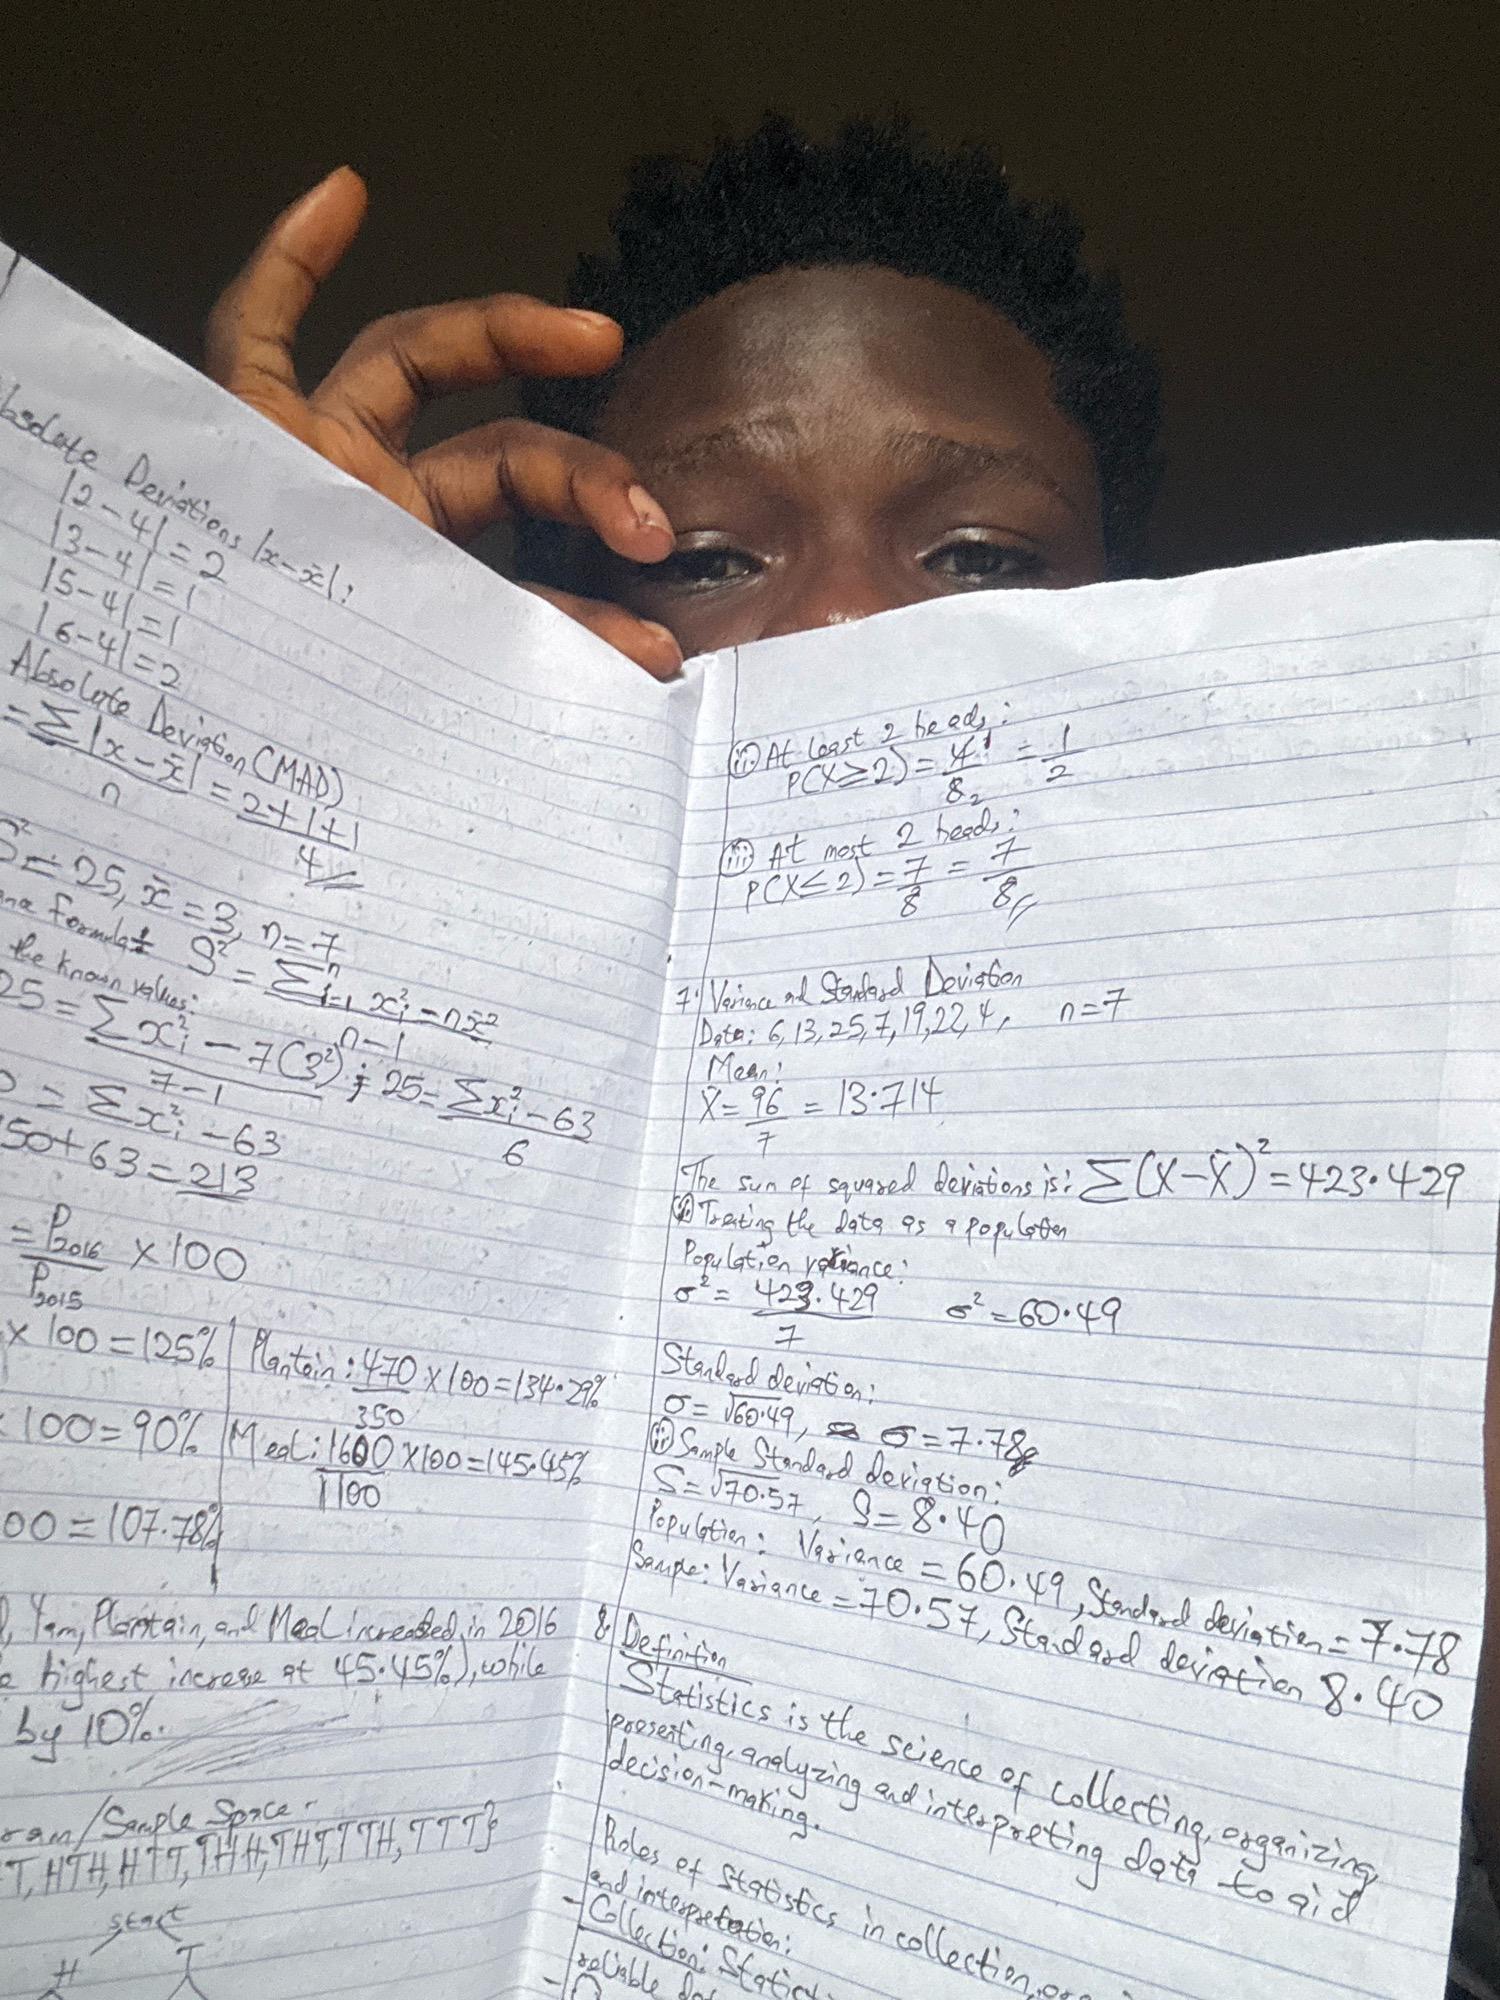 Absolute Deviations |x-x̄|:
|2-4|=2
|3-4|=1
|5-4|=1
|6-4|=2
Absolute Deviation (MAD)
= Σ|x-x̄| / n = 2+1+1 / 4
S²=25, x̄=3, n=7
formula: S² = Σⁿᵢ₌₁ xᵢ² - nx̄² / n-1
the known values:
25 = Σxᵢ² - 7(3²) / 7-1 ; 25 = Σxᵢ² - 63 / 6
= Σxᵢ² - 63
150+63=213
= P2016 / P2015 × 100
× 100=125% | Plantain: 470/350 ×100=134.29%
× 100=90% | Meal: 1600/1100 ×100=145.45%
00=107.78%
, Yam, Plantain, and Meal increased in 2016
highest increase at 45.45%), while
by 10%.
/Sample Space.
T, HTH, HTT, THH, THT, TTH, TTT}
start
H T
(ii) At least 2 heads:
P(X≥2) = 4 1/8 2 = 1/2
(iii) At most 2 heads:
P(X≤2) = 7/8 = 7/8
7. Variance and Standard Deviation
Data: 6, 13, 25, 7, 19, 22, 4, n=7
Mean:
X̄ = 96/7 = 13.714
The sum of squared deviations is: Σ(X-X̄)²=423.429
(i) Treating the data as a population
Population variance:
σ² = 423.429/7 σ²=60.49
Standard deviation:
σ=√60.49, σ=7.78
(ii) Sample Standard deviation:
S=√70.57, S=8.40
Population: Variance = 60.49, Standard deviation = 7.78
Sample: Variance = 70.57, Standard deviation 8.40
8. Definition
Statistics is the science of collecting, organizing,
presenting, analyzing and interpreting data to aid
decision-making.
Roles of Statistics in collection,
and interpretation:
- Collection:
reliable